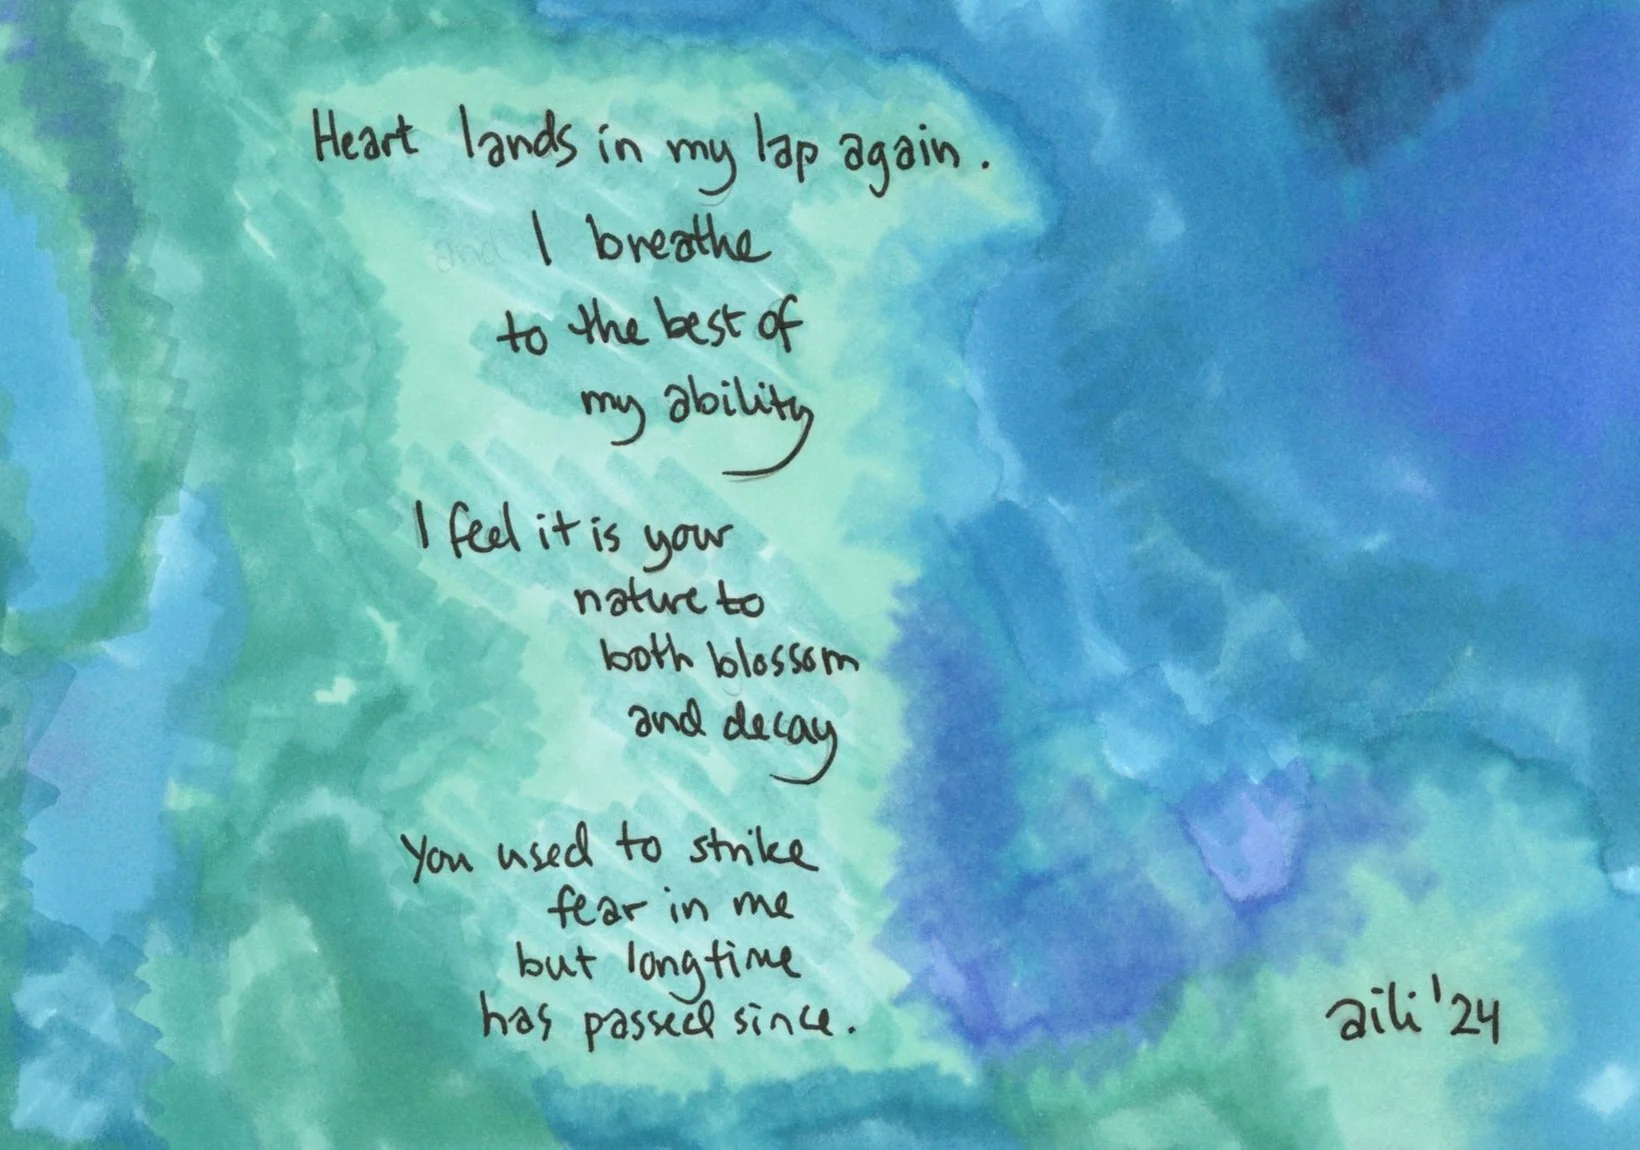 Heart lands in my lap again.
and I breathe
to the best of
my ability
I feel it is your
nature to
both blossom
and decay
You used to strike
fear in me
but longtime
has passed since.
aili '24